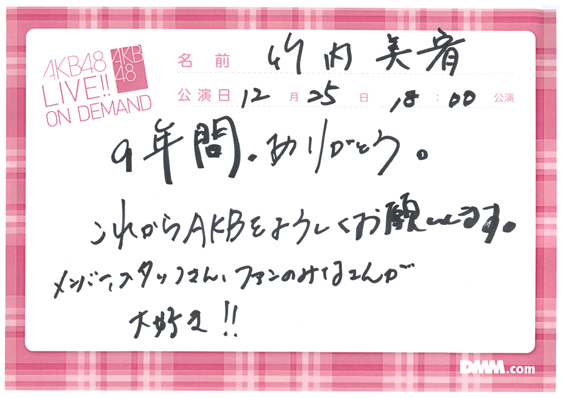 AKB48
LIVE!!
ON DEMAND
AKB
48
名前 竹内美宥
公演日 12月25日 18:00 公演
9年間、ありがとう。
これからもAKBをよろしくお願いします。
メンバー、スタッフさん、ファンのみなさんが
大好き!!
DMM.com